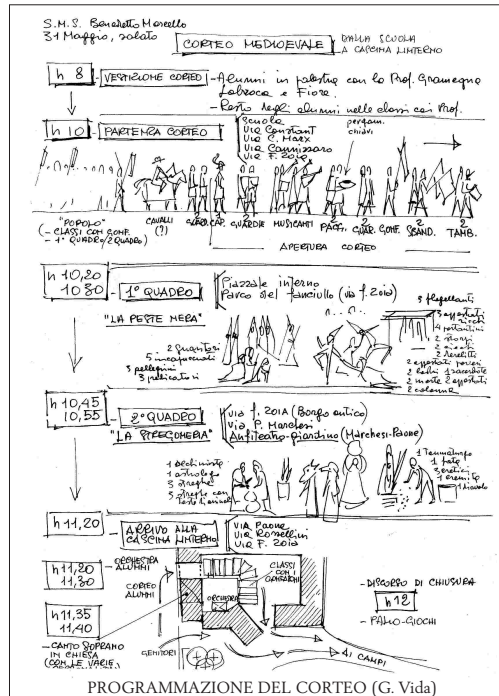 S.M.S. Benedetto Marcello
31 Maggio, sabato
CORTEO MEDIOEVALE DALLA SCUOLA
A CASCINA LINTERNO
h 8 - VESTIZIONE CORTEO - Alunni in palestra con la Prof. Gramegna
Labroca e Fiore.
- Resto degli alunni nelle classi coi Prof.
h 10 - PARTENZA CORTEO
Scuola
Via Constant
Via C. Marx
Via Cannizzaro
Via F. Zoia
pergam.
chiavi
"POPOLO"
(- CLASSI CON GONF.
- 1° QUADRO/2 QUADRO)
CAVALLI
(?)
2 GUARDIE
MUSICANTI
PAGGI
2 GUAR.
GONF.
2 SBAND.
2 TAMB.
APERTURA CORTEO
h 10,20
10 30
- 1° QUADRO
Piazzale interno
Parco del fanciullo (via F. Zoia)
"LA PESTE NERA"
5 incappucciati
3 pellegrini
3 predicatori
3 flagellanti
3 appestati
ricchi
4 portantini
2 appestati poveri
1 sacerdote
2 morte 2 appestati
2 colonna
h 10,45
10,55
- 2° QUADRO
Via F. ZOIA (Borgo antico)
Via P. Marchesi
Anfiteatro-giardino (Marchesi-Paone)
"LA STREGONERIA"
1 alchimista
1 astrologo
3 streghe
3 streghe con
teste di animali
1 Taumaturgo
1 fata
3 eretici
1 eremita
1 diavolo
h 11,20
- ARRIVO ALLA
CASCINA LINTERNO
VIA Paone
Via Rossellini
Via F. Zoia
h 11,20
11,30
- ORCHESTRA
ALUNNI
CORTEO
ALUNNI
CLASSI
CON I
GONFALONI
ORCHESTRA
- DISCORSO DI CHIUSURA
h 12
- PALIO-GIOCHI
h 11,35
11,40
- CANTO SOPRANO
IN CHIESA
(CON LE VARIE
GENITORI
AI CAMPI
PROGRAMMAZIONE DEL CORTEO (G. Vida)